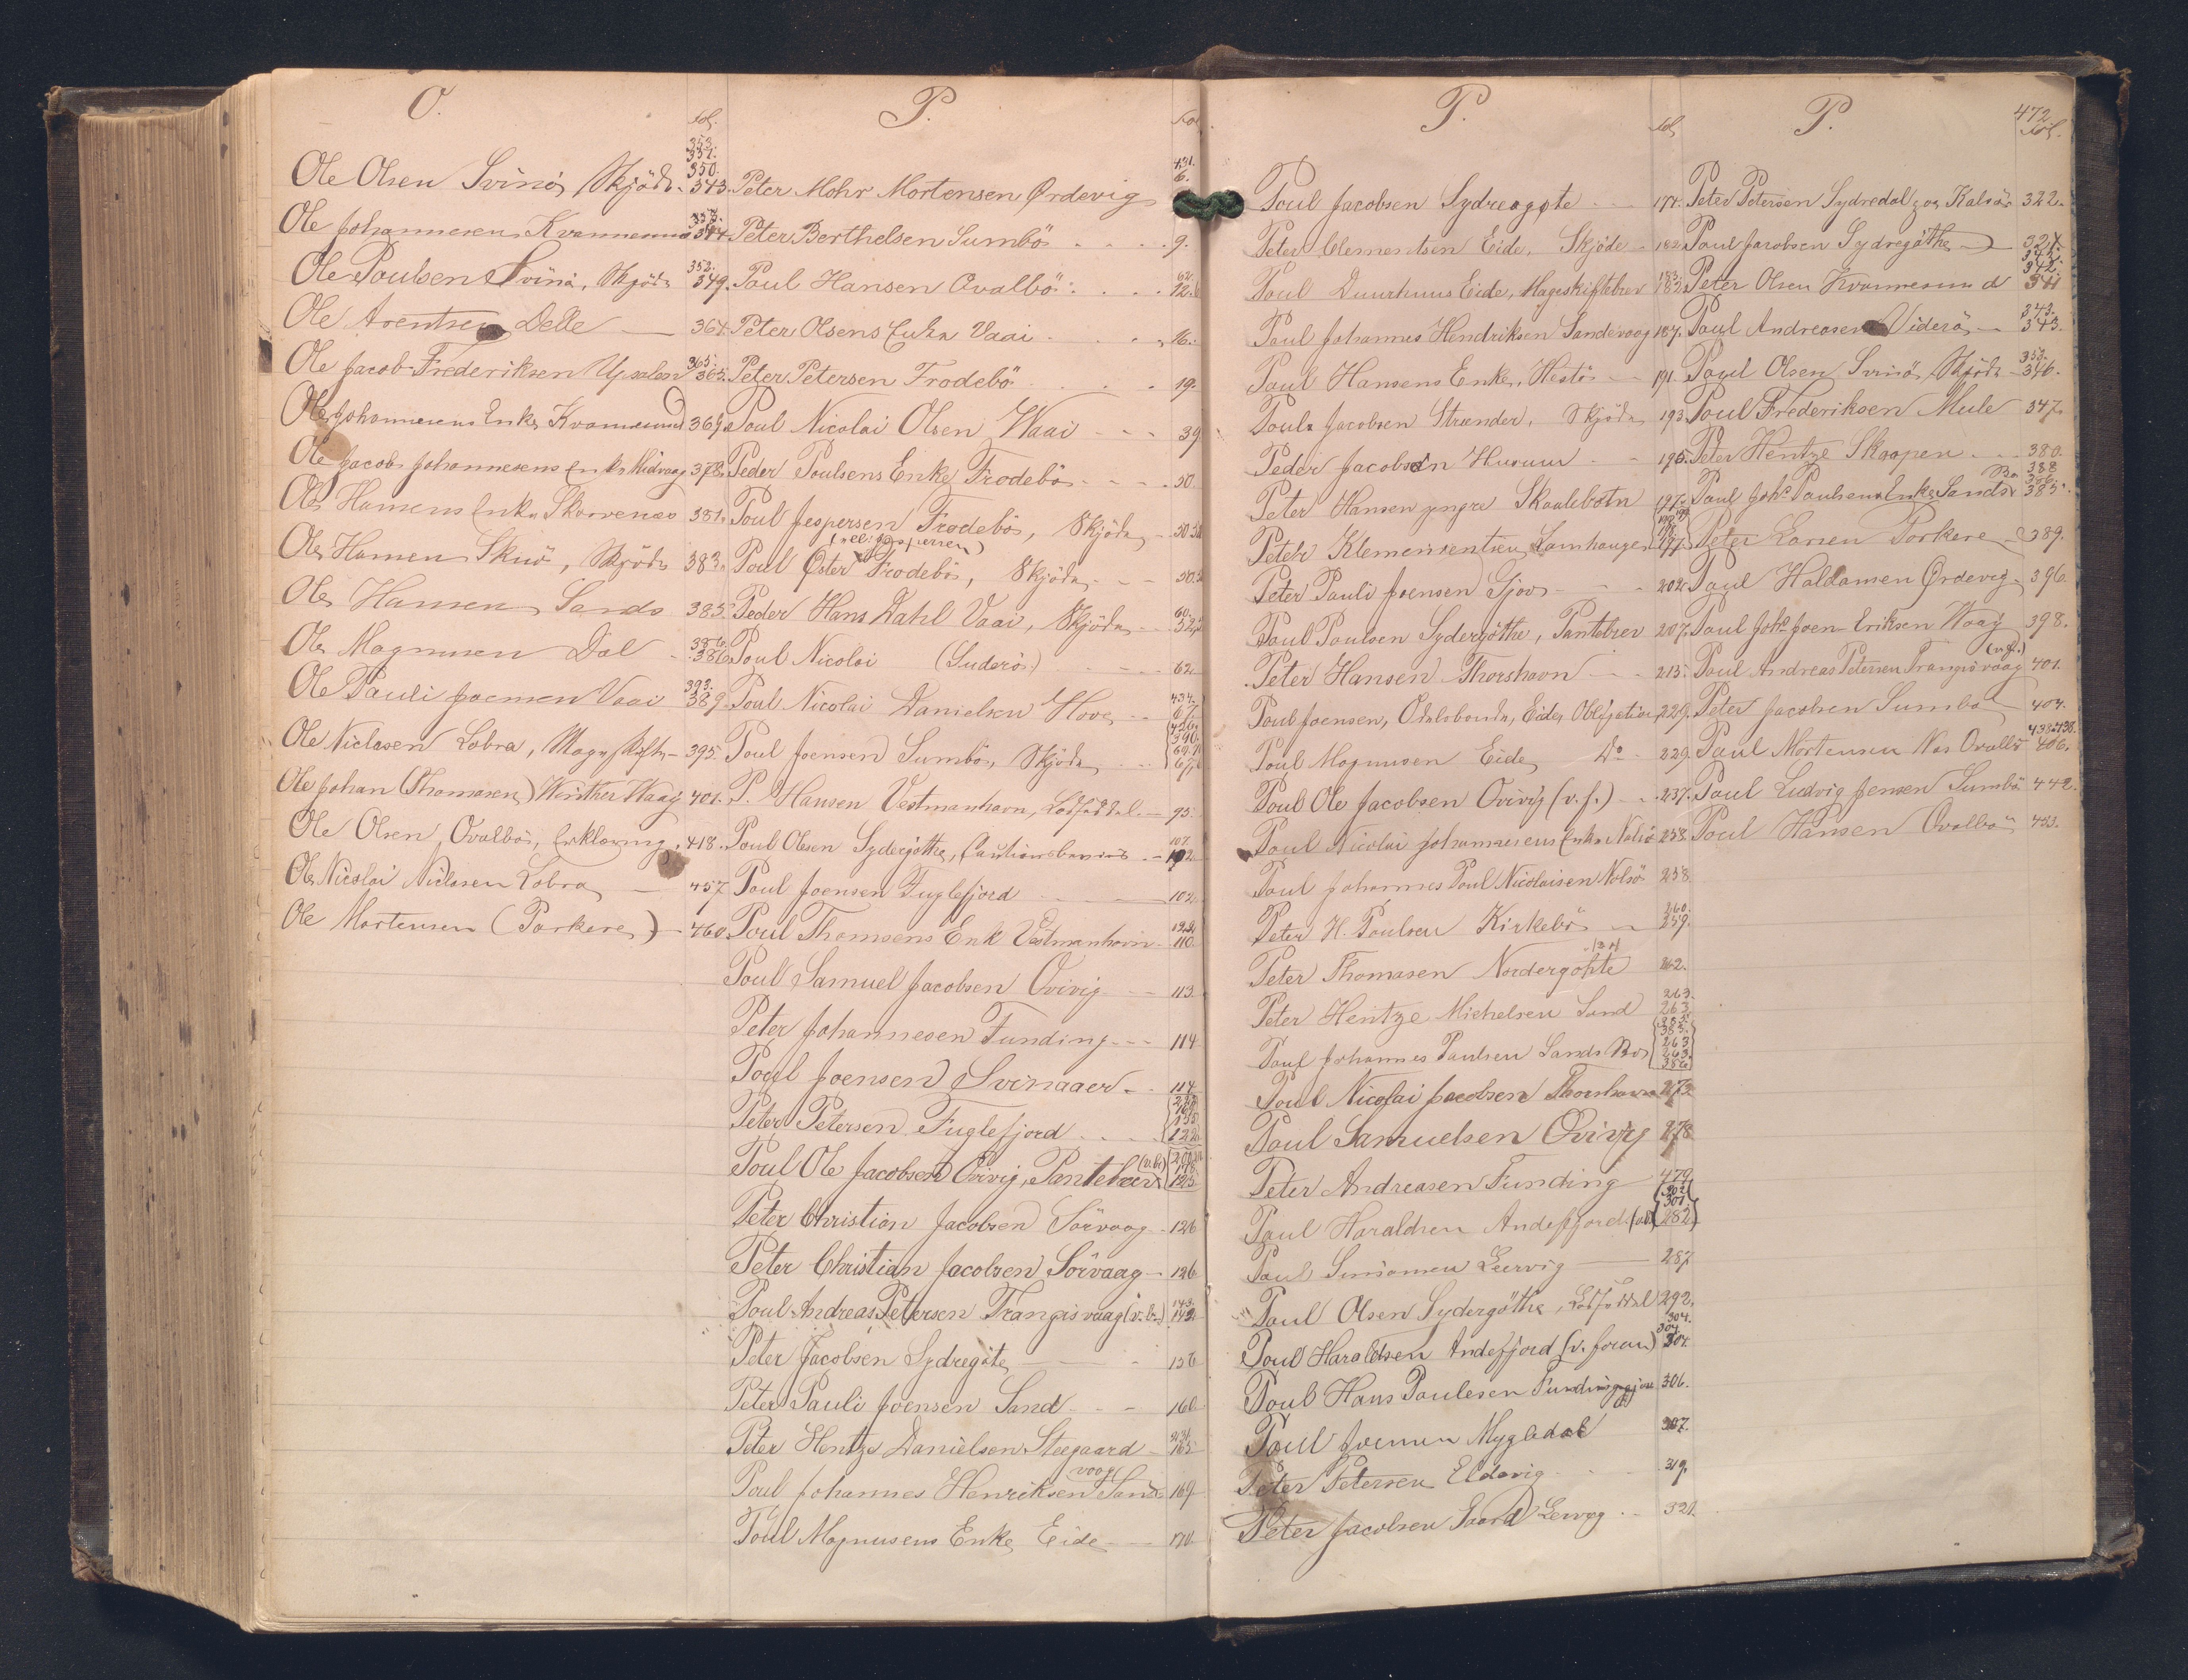 O.
fol.
353.
351.
350.
Ole Olsen Svinö, Skjöde - 343.
Ole Johannesen Kvannesund 344.
352.
Ole Poulsen Svinö, Skjöde 349.
Ole Arentsen Delle — 364.
365.
Ole Jacob Frederiksen Upsalen 365.
Ole Johannesens Enke Kvannesund 369.
Ole Jacob Johannesens Enke Midvaag 378.
Ole Hansens Enke Skarvenes 381.
Ole Hansen Skuö, Skjöde 383.
Ole Hansen Sands 385.
386.
Ole Magnusen Dal - 386.
393.
Ole Pauli Joensen Vaai 389.
Ole Niclasen Lobra, Mages - 395.
Ole Johan (Thomasen) Winther Waag 401.
Ole Olsen Ovalbö, Erklæring, 418.
Ole Nicolai Niclasen Lobra — 457.
Ole Mortensen (Porkere) - 460.
P.
Fol.
431.
6.
Peter Mohr Mortensen Ørdevig
Peter Berthelsen Sumbö . . . . 9.
62.
Poul Hansen Ovalbö . . . . 12.
Peter Olsens Enke Vaai . . . . 16.
Peter Petersen Frodebö . . . . 19.
Poul Nicolai Olsen Waai - - - 39
Peder Poulsens Enke Frodebö - - - 50.
Poul Jespersen Frodebö, Skjöde - 50.
(ell. Jespersen)
Poul Öster Frodebö, Skjöde - - 50.
60.
Peder Hans Dahl Vaai, Skjöde - 52.
Poul Nicolai (Suderö) - - 62
434.
Poul Nicolai Danielsen Hove - - 67
436.
390.
69.
Poul Joensen Sumbö, Skjöde - - 67
P. Hansen Vestmanhavn, Lodseddel - 95.
107.
Poul Olsen Sydergöthe, Cautionsbevis - 102
Poul Joensen Fuglefjord — 102
Poul Thomsens Enk Vestmanhavn - 110.
Poul Samuel Jacobsen Ovivig - - 113.
Peter Johannesen Funding - - - 114
Poul Joensen Svinaaer - - 114
Peter Petersen Fuglefjord . . . . 122
155
(v. br.)
Poul Ole Jacobsen Ovivig, Pantebrev 125
Peter Christian Jacobsen Sörvaag - 126
Peter Christian Jacobsen Sörvaag - 126
143.
Poul Andreas Petersen Trangisvaag (v. br.) 142
Peter Jacobsen Sydregöte — - 156
Peter Pauli Joensen Sand - - - 160
Peter Hentze Danielsen Steegaard - 165.
vaag
Poul Johannes Henriksen Sand 169
Poul Magnusens Enke Eide - - - 170.
P.
fol.
Poul Jacobsen Sydreogøte - - - 174.
Peter Clementsen Eide, Skjöde - 182
183.
Poul Duurhuus Eide, Mageskiftebrev 182
Poul Johannes Hendriksen Sandevaag 187.
Poul Hansens Enke, Hestö - - 191
Poul Jacobsen Strænder, Skjöde 193.
Peder Jacobsen Husum - - 195.
Peter Hansen yngre Skaalebotn 197.
Peter Klemensentsen Lamhauge 197.
Peter Pauli Joensen Gjov - - - 202
Poul Poulsen Sydergöthe, Pantebrev 207.
Peter Hansen Thorshavn - - - 215.
Poul Joensen, Odelsbonde, Eide, Obligation 229.
Poul Magnusen Eide Do - 229
Poul Ole Jacobsen Ovivig (v. f.) - - 237.
Poul Nicolai Johannesens Enke Nolsö 258.
Poul Johannes Poul Nicolaisen Nolsö 258.
260.
Peter H. Poulsen Kirkebö - - 259.
Peter Thomasen Nordergöhte 262.
263.
Peter Hentze Michelsen Sand 263.
285.
385.
263
263.
Poul Johannes Poulsen Sands Bo 386
Poul Nicolai Jacobsen Thorshavn 273
Poul Samuelsen Ovivig 278
Peter Andreasen Funding 479
302
301
Poul Haraldsen Andefjord 282
Poul Simonsen Leervig — 287
Poul Olsen Sydergöthe, Lodseddel 292.
304.
304.
Poul Haraldsen Andefjord (v. foran) 304.
Poul Hans Poulesen Fundingsgjov 306.
Poul Joensen Mygledal 307.
Peter Petersen Eldevig . . . 319.
Peter Jacobsen Gaard Lervig . - 321.
P.
472
Fol.
Peter Petersen Sydredal paa Kalsö 322.
Poul Jacobsen Sydregöthe — 324.
342.
342.
Peter Olsen Kvannesund 341
343.
Poul Andreasen Viderö - 343.
353.
Poul Olsen Svinö, Skjöde - 346.
Poul Frederiksen Mule 347
Peter Hentze Skaapen . . . 380.
388
386.
Bo
Poul Johs Poulsens Enke Sands 385.
Peter Larsen Porkere - 389.
Poul Haldansen Ördevig - 396
Poul Johs Joen-Eriksen Waag 398.
(v. f.)
Poul Andreas Petersen Trangisvaag 401.
Peter Jacobsen Sumbö 404.
438. 438.
Poul Mortensen Nes Ovalbö 406.
Poul Ludvig Jensen Sumbö 442.
Poul Hansen Ovalbö 453.